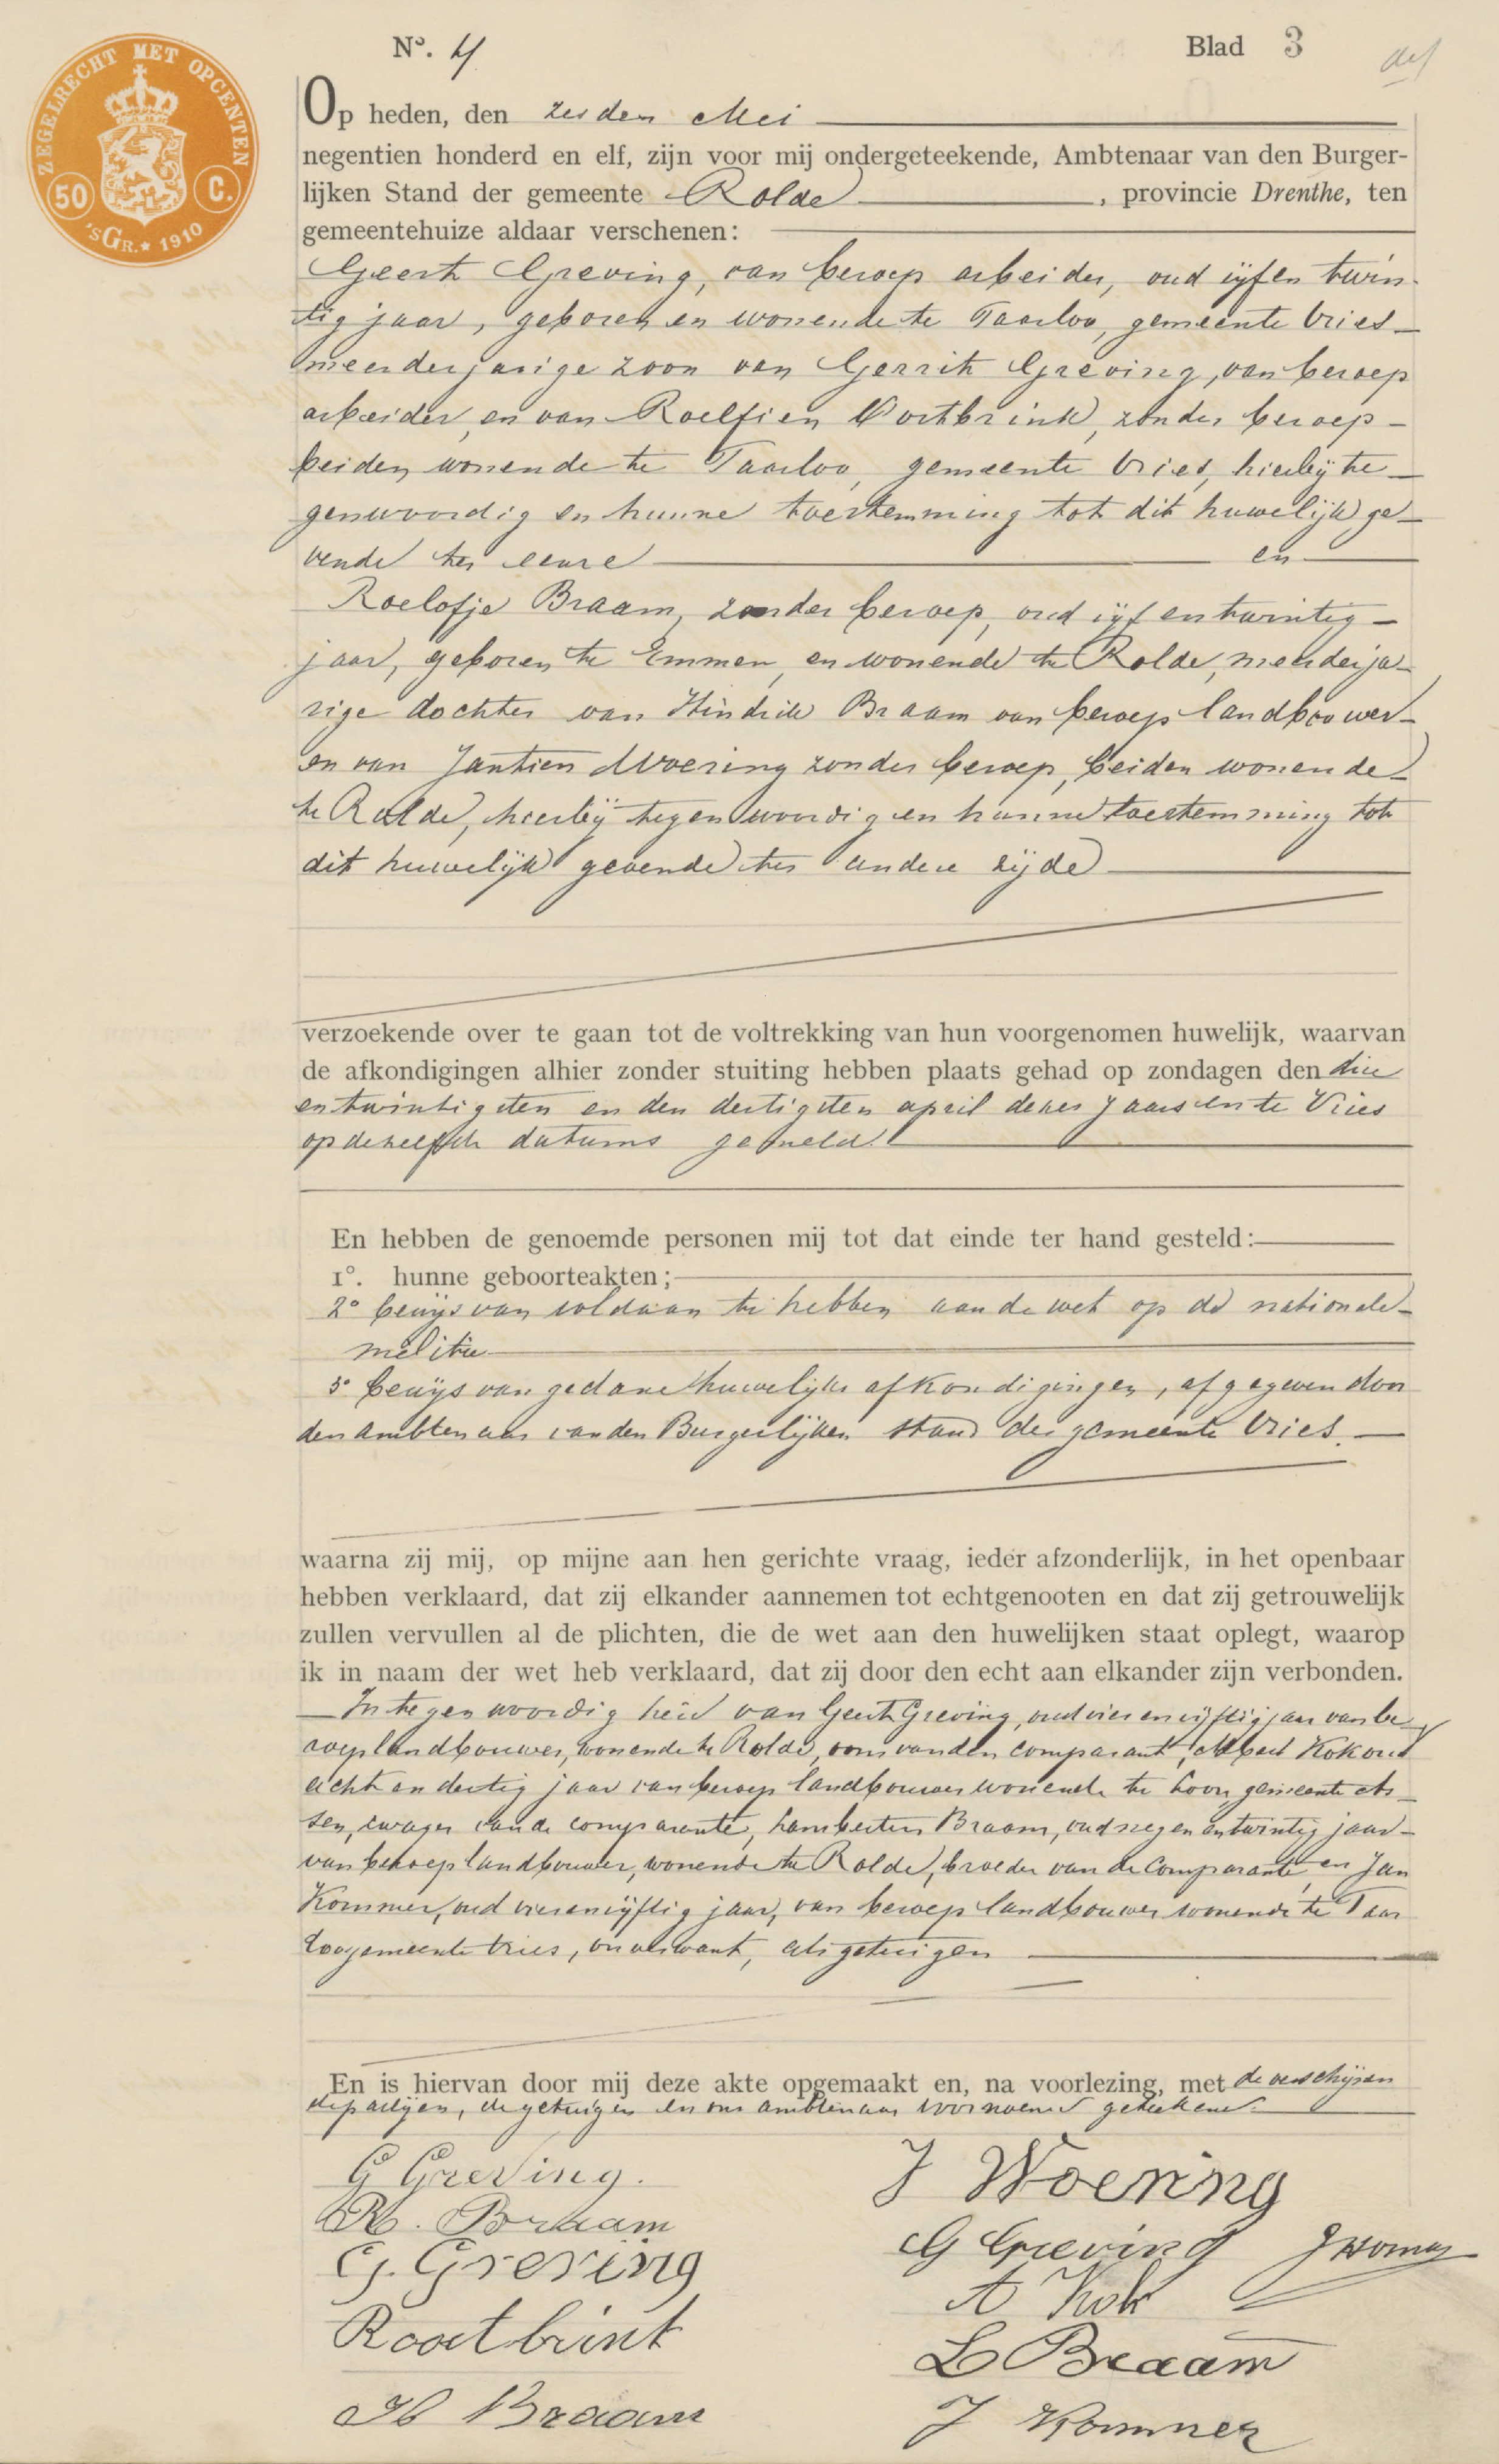 ZEGELRECHT MET OPCENTEN
50 C.
'sGR. ★ 1910
Nº. 4
Blad 3
Op heden, den zesden Mei
negentien honderd en elf, zijn voor mij ondergeteekende, Ambtenaar van den Burger-
lijken Stand der gemeente Rolde, provincie Drenthe, ten
gemeentehuize aldaar verschenen:
Geert Greving, van beroep arbeider, oud vijf en twin-
tig jaar, geboren en wonende te Taarloo, gemeente Vries
meerderjarige zoon van Gerrit Greving, van beroep
arbeider, en van Roelfien Oortbrink, zonder beroep
beiden wonende te Taarloo, gemeente Vries, hierbij te
genwoordig en hunne toestemming tot dit huwelijk ge
vende ter eenre en
Roelofje Braam, zonder beroep, oud vijf en twintig
jaar, geboren te Emmen, en wonende te Rolde, meerderja
rige dochter van Hindrik Braam van beroep landbouwer
en van Jantien Woering zonder beroep, beiden wonende
te Rolde, hierbij tegenwoordig en hunne toestemming tot
dit huwelijk gevende ter andere zijde
verzoekende over te gaan tot de voltrekking van hun voorgenomen huwelijk, waarvan
de afkondigingen alhier zonder stuiting hebben plaats gehad op zondagen den drie
en twintigsten en den dertigsten april dezes jaars en te Vries
op dezelfde datums gemeld.
En hebben de genoemde personen mij tot dat einde ter hand gesteld:
1º. hunne geboorteakten;
2º bewijs van voldaan te hebben aan de wet op de nationale
melitie
3º bewijs van gedane huwelijks afkondigingen, afgegeven door
den ambtenaar van den Burgerlijken stand der gemeente Vries.
waarna zij mij, op mijne aan hen gerichte vraag, ieder afzonderlijk, in het openbaar
hebben verklaard, dat zij elkander aannemen tot echtgenooten en dat zij getrouwelijk
zullen vervullen al de plichten, die de wet aan den huwelijken staat oplegt, waarop
ik in naam der wet heb verklaard, dat zij door den echt aan elkander zijn verbonden.
In tegenwoordigheid van Geert Greving, oud vier en vijftig jaar van be
roep landbouwer, wonende te Rolde, oom van den comparant, Albert Kok oud
acht en dertig jaar van beroep landbouwer wonende te Loon gemeente As
sen, zwager van de comparante, Lambertus Braam, oud negen en twintig jaar
van beroep landbouwer, wonende te Rolde, broeder van de Comparante en Jan
Kommer, oud vier en vijftig jaar, van beroep landbouwer wonende te Taar
loo gemeente Vries, onverwant, als getuigen
En is hiervan door mij deze akte opgemaakt en, na voorlezing, met de verschijnen
de partijen, de getuigen en ons ambtenaar voornoemd geteekend.
G Greving. J Woering
R. Braam
G. Greving G Greving
A Kok
Roortbrink
L Braam
H Braam
J Kommer